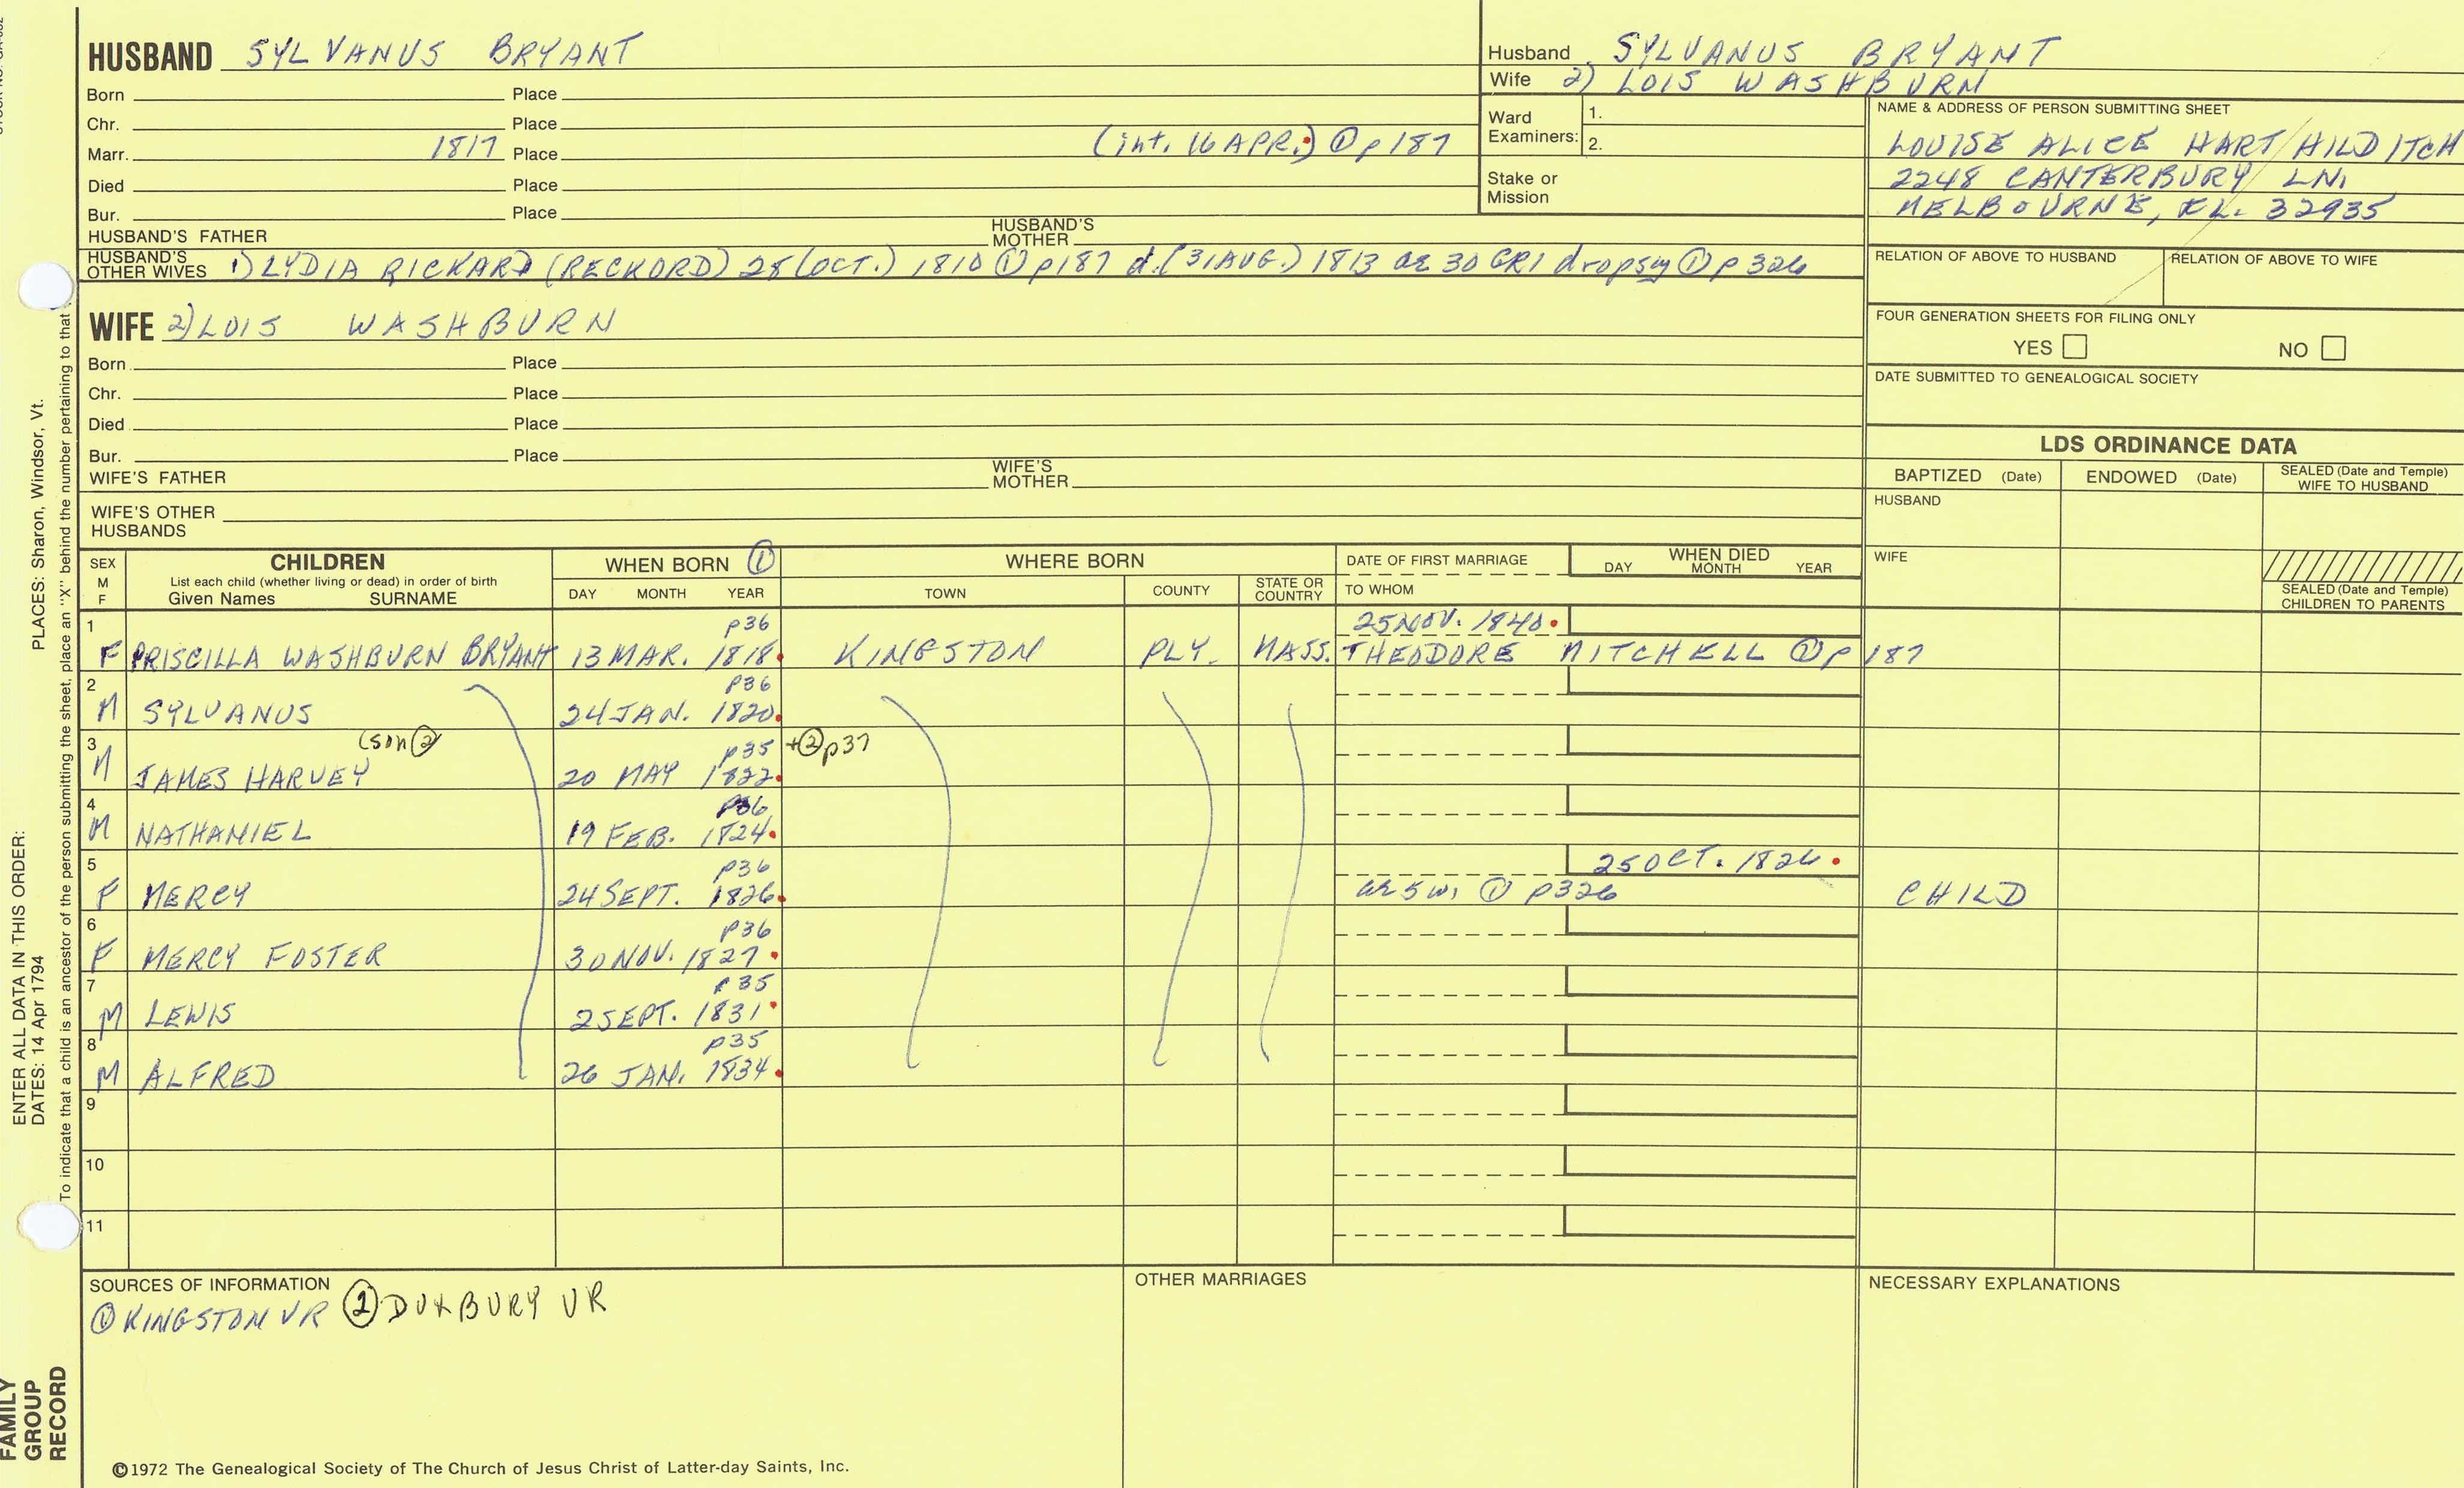 HUSBAND SYLVANUS BRYANT
Born Place
Chr. Place
Marr. 1817 Place (int. 16 APR.) ① p187
Died Place
Bur. Place
HUSBAND'S FATHER HUSBAND'S MOTHER
HUSBAND'S OTHER WIVES 1) LYDIA RICKARD (RECKORD) 28 (OCT.) 1810 ① p187 d. (31 AUG.) 1813 ae 30 GR1 dropsy ① p326
WIFE 2) LOIS WASHBURN
Born Place
Chr. Place
Died Place
Bur. Place
WIFE'S FATHER WIFE'S MOTHER
WIFE'S OTHER HUSBANDS
Husband SYLVANUS BRYANT
Wife 2) LOIS WASHBURN
Ward Examiners: 1.
2.
Stake or Mission
NAME & ADDRESS OF PERSON SUBMITTING SHEET
LOUISE ALICE HART/HILDITCH
2248 CANTERBURY LN.
MELBOURNE, FL. 32935
RELATION OF ABOVE TO HUSBAND RELATION OF ABOVE TO WIFE
FOUR GENERATION SHEETS FOR FILING ONLY
YES NO
DATE SUBMITTED TO GENEALOGICAL SOCIETY
LDS ORDINANCE DATA
BAPTIZED (Date) ENDOWED (Date) SEALED (Date and Temple) WIFE TO HUSBAND
HUSBAND
WIFE
SEALED (Date and Temple) CHILDREN TO PARENTS
SEX M F CHILDREN WHEN BORN ① WHERE BORN DATE OF FIRST MARRIAGE WHEN DIED
List each child (whether living or dead) in order of birth
Given Names SURNAME DAY MONTH YEAR TOWN COUNTY STATE OR COUNTRY TO WHOM DAY MONTH YEAR
1 p36 25 NOV. 1840.
F PRISCILLA WASHBURN BRYANT 13 MAR. 1818. KINGSTON PLY. MASS. THEODORE MITCHELL ① p187
2 p36
M SYLVANUS 24 JAN. 1820.
3 (son ② p35 + ② p37
M JAMES HARVEY 20 MAY 1822.
4 p36
M NATHANIEL 19 FEB. 1824.
5 p36 25 OCT. 1826.
F MERCY 24 SEPT. 1826. ae 5 w. ① p326 CHILD
6 p36
F MERCY FOSTER 30 NOV. 1827.
7 p35
M LEWIS 2 SEPT. 1831.
8 p35
M ALFRED 26 JAN. 1834.
9
10
11
SOURCES OF INFORMATION OTHER MARRIAGES NECESSARY EXPLANATIONS
① KINGSTON VR ② DUXBURY VR
©1972 The Genealogical Society of The Church of Jesus Christ of Latter-day Saints, Inc.
ENTER ALL DATA IN THIS ORDER:
DATES: 14 Apr 1794 PLACES: Sharon, Windsor, Vt.
To indicate that a child is an ancestor of the person submitting the sheet, place an "X" behind the number pertaining to that
FAMILY
GROUP
RECORD